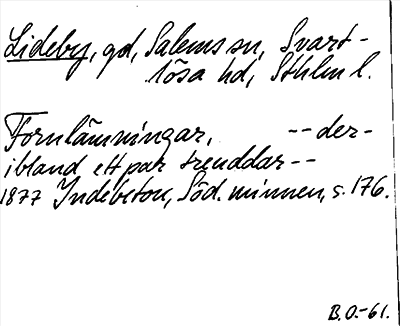 Lideby, gd, Salems sn, Svart-
lösa hd, Sthlm l.
Fornlämningar, -- der-
ibland ett par treuddar --
1877 Indebetou, Söd. minnen, s. 176.
B.O.-61.